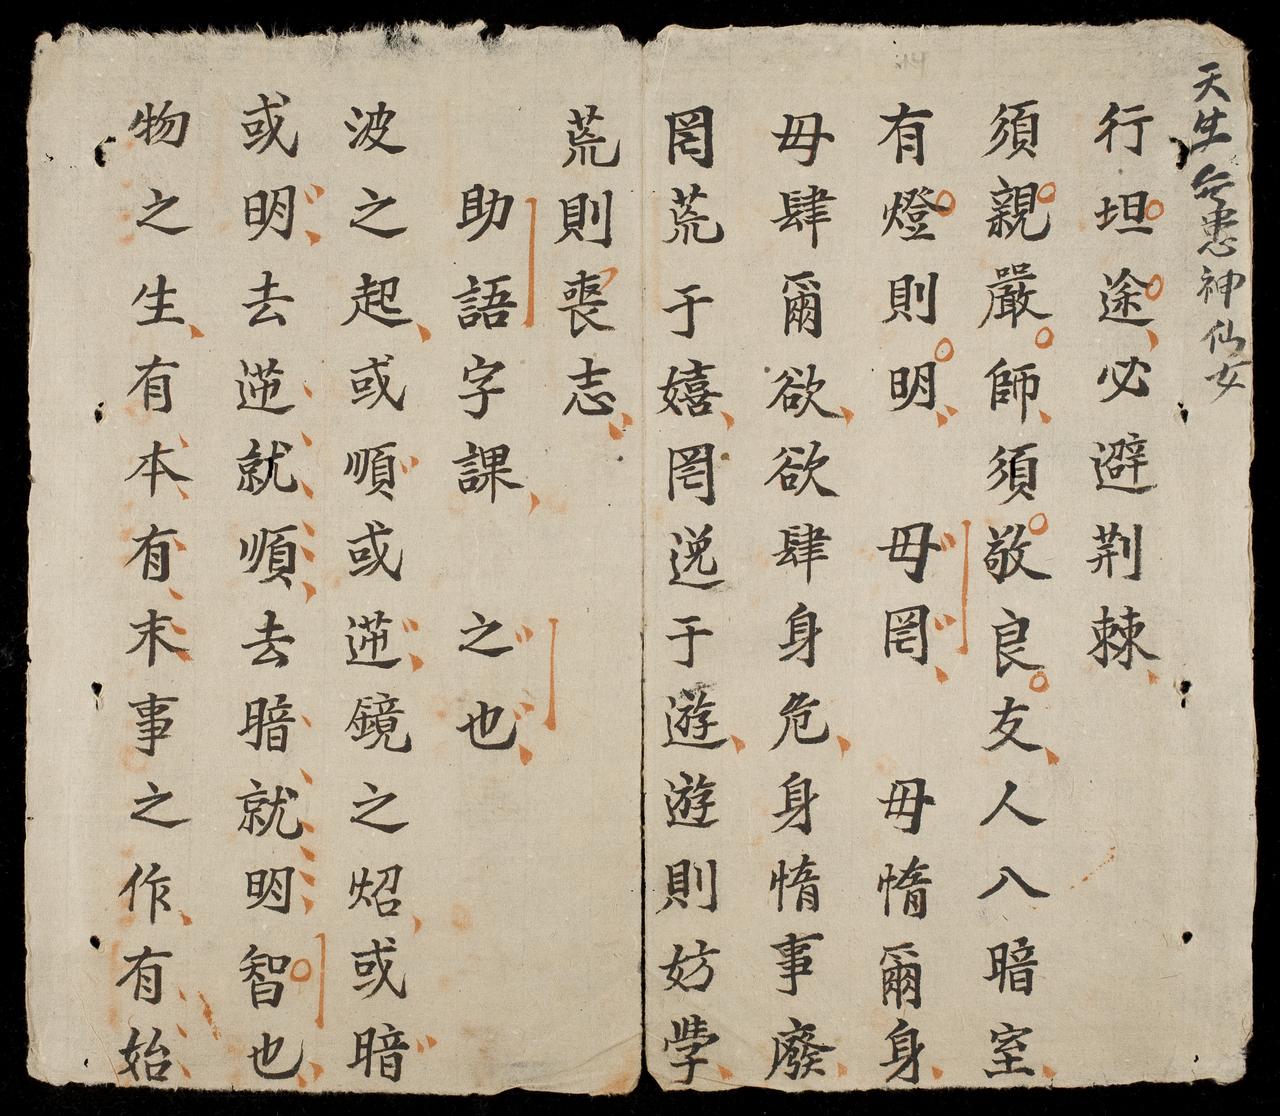 天生無患神仙女
行坦途必避荆棘
須親嚴師須敬良友人入暗室
有燈則明 毋罔 毋惰爾身
毋肆爾欲欲肆身危身惰事廢
罔荒于嬉罔逸于遊遊則妨學
荒則喪志
助語字課 之也
波之起或順或逆鏡之炤或暗
或明去逆就順去暗就明智也
物之生有本有末事之作有始